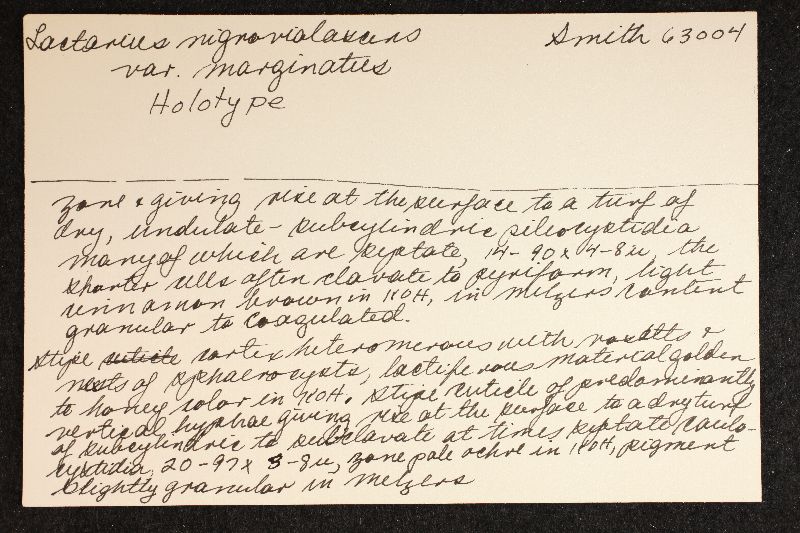 Lactarius nigroviolascens
Smith 63004
var. marginatus
Holotype
zone & giving rise at the surface to a turf of
dry, undulate - subcylindric pileocystidia
many of which are septate, 14-90 x 4-8u, the
shorter cells often clavate to pyriform, light
cinnamon brown in KOH, in melzers content
granular to coagulated.
Stipe cortex heteromerous with rosetts &
nests of sphaerocysts, lactiferous material golden
to honey color in KOH. Stipe cuticle of predominantly
vertical hyphae giving rise at the surface to a dry turf
of subcylindric to subclavate at times septate caulo-
cystidia, 20-97 x 3-8u, zone pale ochre in KOH, pigment
slightly granular in melzers